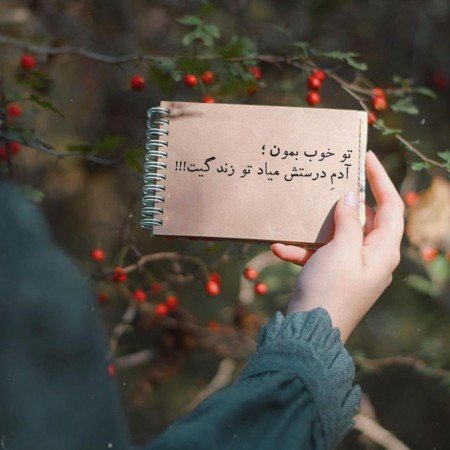 تو خوب بمون ؛
آدمِ درستش میاد تو زندگیت!!!